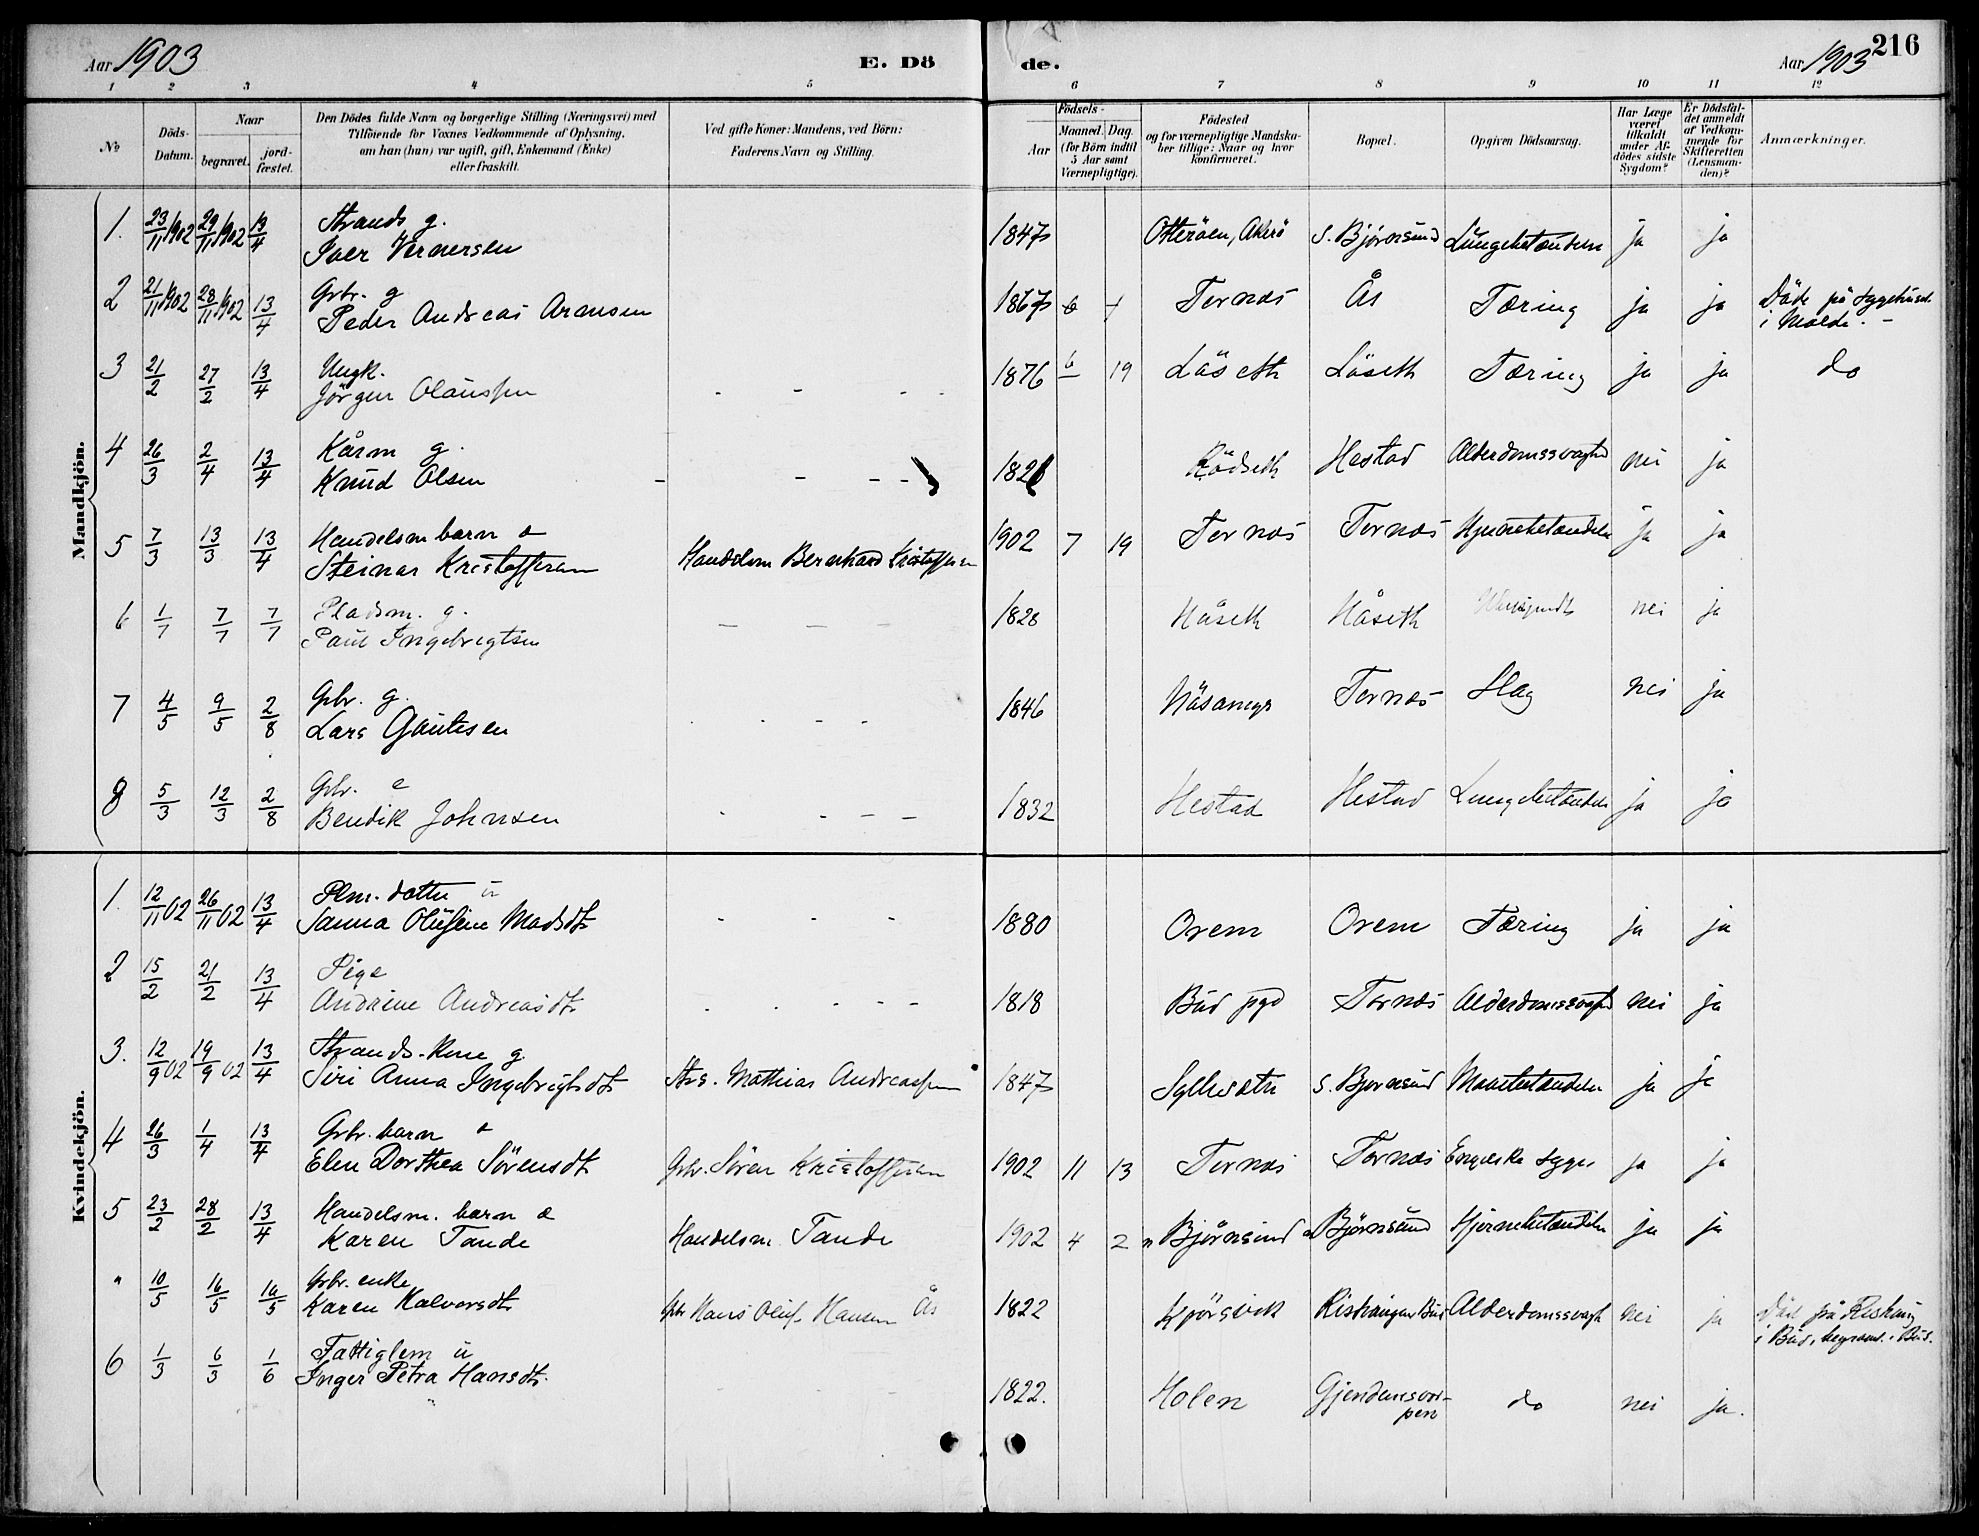 Aar 1903 E. Dö de. Aar 1903 216
1 2 3 4 5 6 7 8 9 10 11 12
No Döds-Datum. Naar begravet. jord-fæstet. Den Dödes fulde Navn og borgerlige Stilling (Næringsvei) med Tilföiende for Voxnes Vedkommende af Oplysning, om han (hun) var ugift, gift, Enkemand (Enke) eller fraskilt. Ved gifte Koner: Mandens, ved Börn: Faderens Navn og Stilling. Födsels- Aar Maaned. Dag. (for Börn indtil 5 Aar samt Værnepligtige). Födested og for værnepligtige Mandskaber tillige: Naar og hvor Konfirmeret. Bopæl. Opgiven Dödsaarsag. Har Læge været tilkaldt under Afdödes sidste Sygdom? Er Dödsfaldet anmeldt af Vedkommende for Skifteretten (Lensmanden)? Anmærkninger.
Mandkjön.
1. 23/11 1902 29/11 1902 13/4 Strands g.
Iver Vernersen 1847 Otteröen, Akerö S. Björnsund Lungebetændelse ja ja
2 21/11 1902 28/11 1902 13/4 Gbr. g
Peder Andreas Arnesen 1867 6 1 Tornes Ås Tæring ja ja Död på sygehuset
i Molde. -
3 21/2 27/2 13/4 Ungk.
Jörgen Olaussen - - - - 1876 6 19 Låseth Låseth Tæring ja ja do
4 26/3 2/4 13/4 Kårm g.
Knud Olsen - - - - Rödseth Hestad Alderdomssvaghed nei ja
5 7/3 13/3 13/4 Handelsm barn
Steinar Kristoffersen Handelsm Bernhard Kristoffersen 1902 7 19 Tornes Tornes Hjernebetændelse ja ja
6 1/7 7/7 7/7 Pladsm. g.
Paul Ingebrigtsen - - - 1828 Håseth Håseth nei ja
7 4/5 9/5 2/8 Gbr. g.
Lars Gautesen - - - - 1846 Näsamyr Tornes Slag nei ja
8 5/3 12/3 2/8 Gbr. e
Bendik Johnsen - - - - 1832 Hestad Hestad Lungebetændelse ja ja
Kvindekjön.
1. 12/11 02 26/11 02 13/4 Plm. datter ü
Sanna Olufine Madsdt. - - - 1880 Orem Orem Tæring ja ja
2 15/2 21/2 13/4 Pige
Andrine Andreasdt. - - - - - 1818 Bud pgd Tornes Alderdomssvaghed nei ja
3. 12/9 02 19/9 02 13/4 Strands. Kone g.
Siri Anna Ingebrigtsdt Strs. Mathias Andreassen 1847 Sylteseth S. Bjornsund Mavebetændelse ja ja
4 26/3 1/4 13/4 Gbr. barn
Elen Dorthea Sörensdt Gbr. Sören Kristoffersen 1902 11 13 Tornes Tornes Engelske syge ja ja
5 23/2 28/2 13/4 Handelsm. barn
Karen Tande Handelsm. Tande 1902 4 2 n Björnsund n Björnsund Hjernebetændelse ja ja
" 10/5 16/5 16/5 Gbr. enke
Karen Halvorsdt. Gbr Hans Oluf Hansen Ås 1822 Kjörsvik Riskaugen Bud Alderdomssvagh nei ja Död på Riskaug
i Bud, begravet i Bud.
6 1/3 6/3 1/6 Fattiglem ü
Inger Petra Hansdt. - - - 1822. Holen Gjendemsvor-
pen do nei ja.